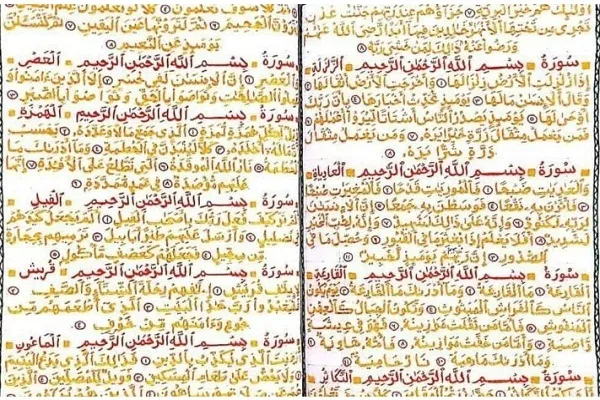 أولئك هم خير البرية ٧ جزاؤهم عند ربهم جنت عدن
تجرى من تحتها الأنهر خلدين فيها أبدا رضى الله عنهم
ورضوا عنه ذلك لمن خشى ربه ٨
سورة بسم الله الرحمن الرحيم الزلزلة
إذا زلزلت الأرض زلزالها ١ وأخرجت الأرض أثقالها ٢
وقال الإنسن ما لها ٣ يومئذ تحدث أخبارها ٤ بأن ربك
أوحى لها ٥ يومئذ يصدر الناس أشتاتا ليروا أعملهم ٦
فمن يعمل مثقال ذرة خيرا يره ٧ ومن يعمل مثقال
ذرة شرا يره ٨
سورة بسم الله الرحمن الرحيم العاديات
والعديت ضبحا ١ فالموريت قدحا ٢ فالمغيرت صبحا
٣ فأثرن به نقعا ٤ فوسطن به جمعا ٥ إن الإنسن
لربه لكنود ٦ وإنه على ذلك لشهيد ٧ وإنه لحب الخير
لشديد ٨ أفلا يعلم إذا بعثر ما فى القبور ٩ وحصل ما فى
الصدور ١٠ إن ربهم بهم يومئذ لخبير ١١
سورة بسم الله الرحمن الرحيم القارعة
القارعة ١ ما القارعة ٢ وما أدرىك ما القارعة ٣ يوم يكون
الناس كالفراش المبثوث ٤ وتكون الجبال كالعهن
المنفوش ٥ فأما من ثقلت موزينه ٦ فهو فى عيشة
راضية ٧ وأما من خفت موزينه ٨ فأمه هاوية ٩
وما أدرىك ما هيه ١٠ نار حامية ١١
سورة بسم الله الرحمن الرحيم التكاثر
الجحيم ٦ ثم لترونها عين اليقين ٧ ثم لتسئلن
يومئذ عن النعيم ٨
سورة بسم الله الرحمن الرحيم العصر
والعصر ١ إن الإنسن لفى خسر ٢ إلا الذين ءامنوا
وعملوا الصلحت وتواصوا بالحق وتواصوا بالصبر ٣
سورة بسم الله الرحمن الرحيم الهمزة
ويل لكل همزة لمزة ١ الذى جمع مالا وعدده ٢ يحسب
أن ماله أخلده ٣ كلا لينبذن فى الحطمة ٤ وما أدرىك ما
الحطمة ٥ نار الله الموقدة ٦ التى تطلع على الأفئدة ٧ إنها
عليهم مؤصدة ٨ فى عمد ممددة ٩
سورة بسم الله الرحمن الرحيم الفيل
ألم تر كيف فعل ربك بأصحب الفيل ١ ألم يجعل كيدهم
فى تضليل ٢ وأرسل عليهم طيرا أبابيل ٣ ترميهم بحجارة
من سجيل ٤ فجعلهم كعصف مأكول ٥
سورة بسم الله الرحمن الرحيم قريش
لإيلف قريش ١ إىلفهم رحلة الشتاء والصيف ٢
فليعبدوا رب هذا البيت ٣ الذى أطعمهم من
جوع وءامنهم من خوف ٤
سورة بسم الله الرحمن الرحيم الماعون
أرءيت الذى يكذب بالدين ١ فذلك الذى يدع اليتيم
٢ ولا يحض على طعام المسكين ٣ فويل للمصلين ٤ الذين